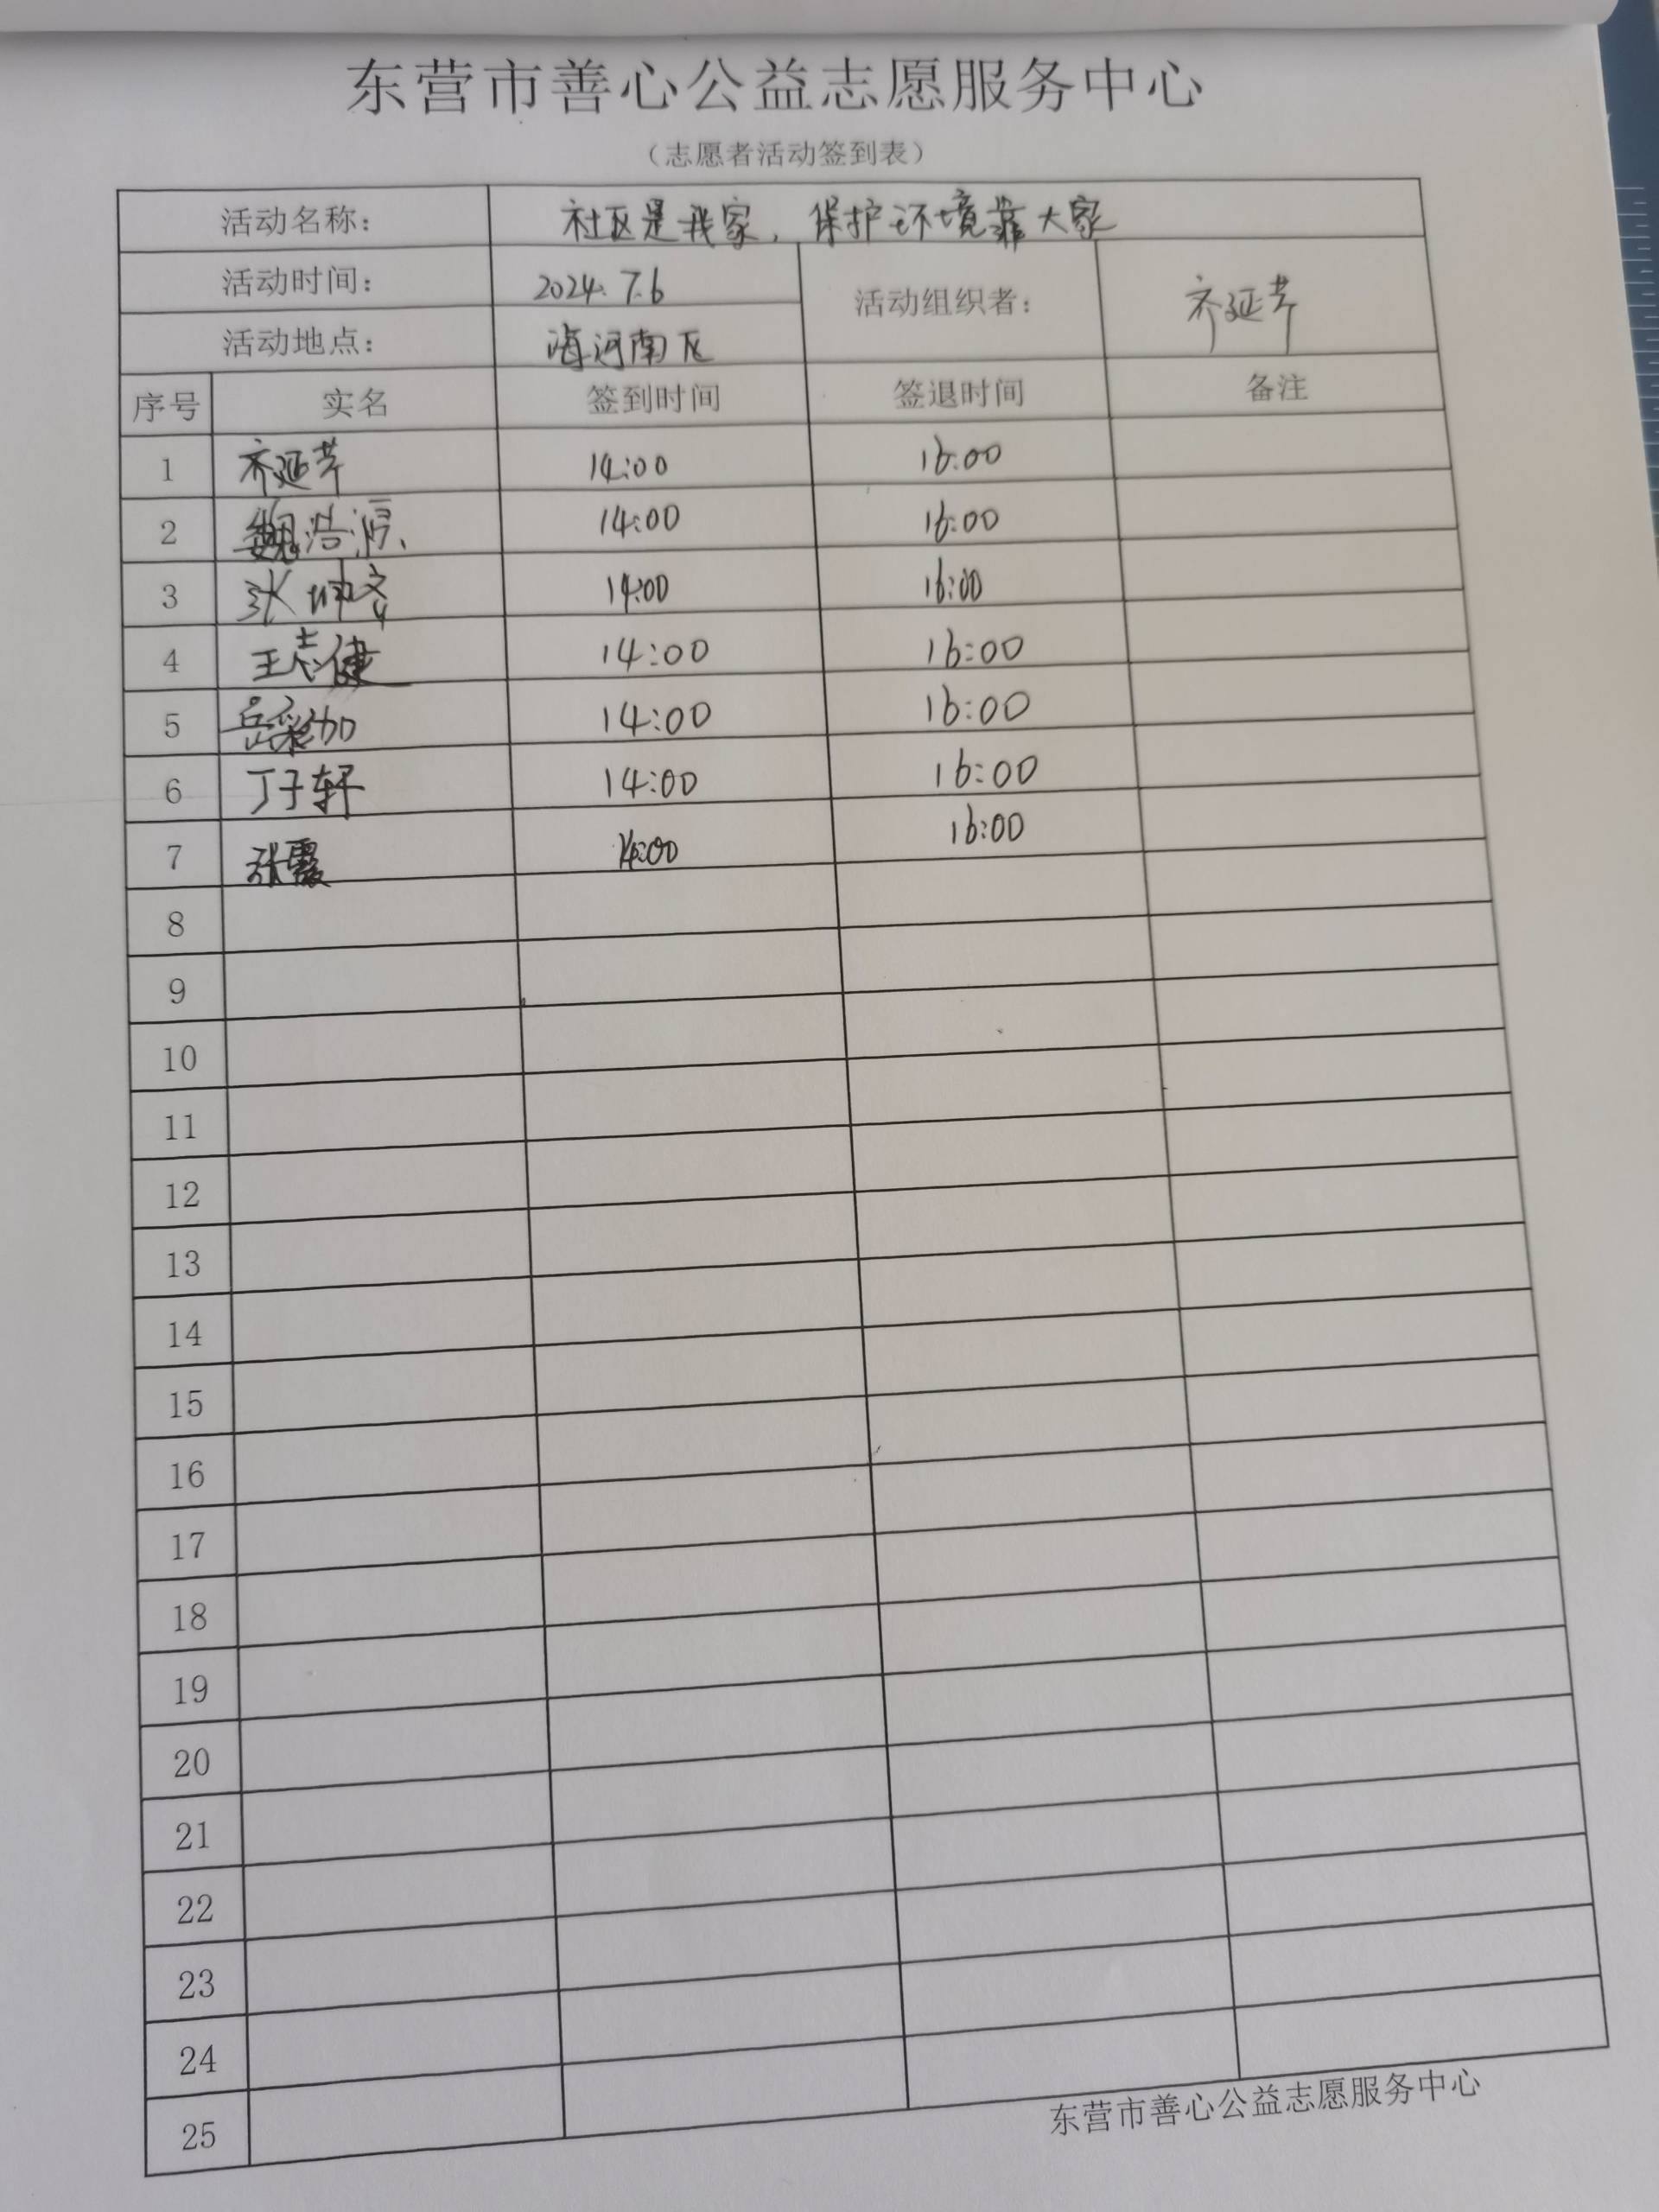 东营市善心公益志愿服务中心
（志愿者活动签到表）
活动名称： 社区是我家，保护环境靠大家
活动时间： 2024.7.6 活动组织者： 齐延芹
活动地点： 海河南区
序号 实名 签到时间 签退时间 备注
1 齐延芹 14:00 16:00
2 魏浩源 14:00 16:00
3 张坤 14:00 16:00
4 王志健 14:00 16:00
5 岳彩加 14:00 16:00
6 丁子轩 14:00 16:00
7 张霞 14:00 16:00
8
9
10
11
12
13
14
15
16
17
18
19
20
21
22
23
24
25
东营市善心公益志愿服务中心